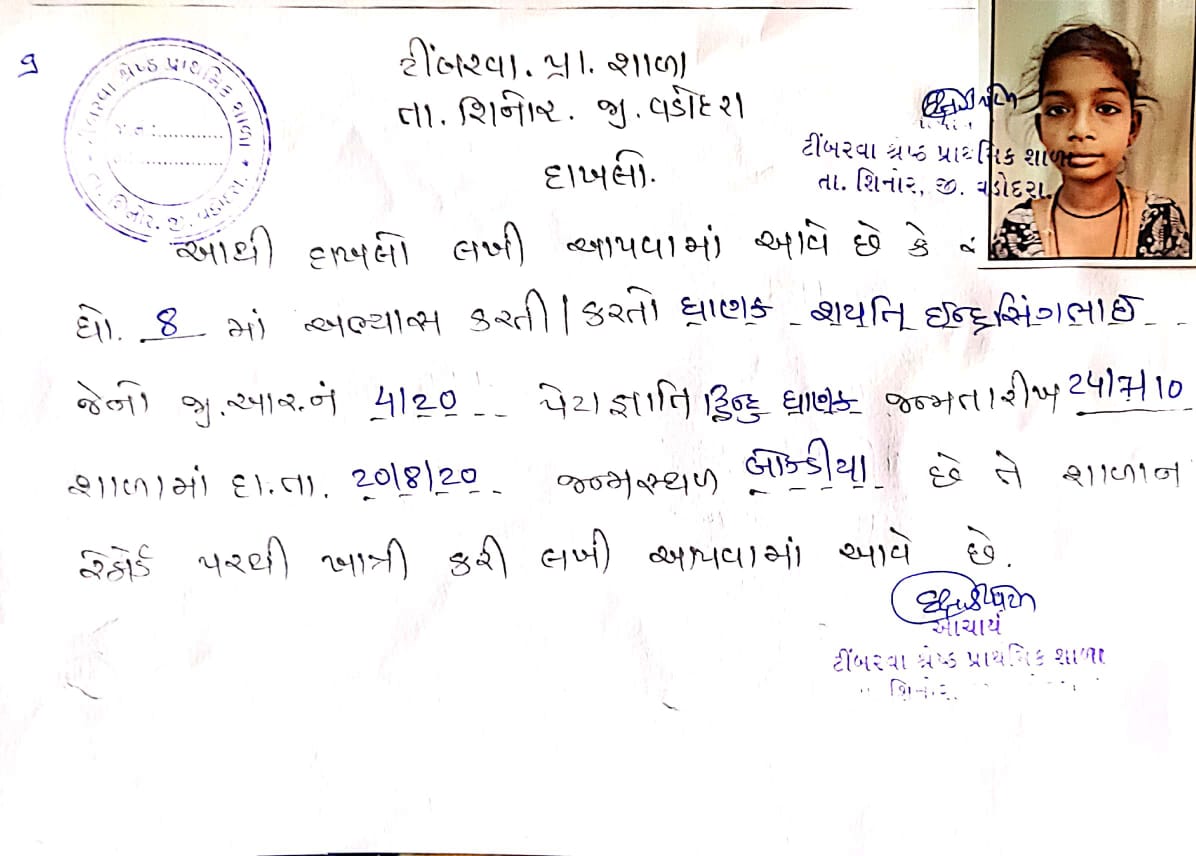 ૧
ટીંબરવા. પ્રા. શાળા
તા. શિનોર. જી. વડોદરા
દાખલો.
ટીંબરવા શ્રેષ્ઠ પ્રાથમિક શાળા
તા. શિનોર, જી. વડોદરા.
ટીંબરવા શ્રેષ્ઠ પ્રાથમિક શાળા
તા. શિનોર. જી. વડોદરા
આથી દાખલો લખી આપવામાં આવે છે કે
ધો. 8 માં અભ્યાસ કરતી / કરતો ધાણક ઈન્દ્રસિંગભાઈ
જેનો જી.આર.નં 4/20 પેટાજ્ઞાતિ હિન્દુ ધાણક જન્મતારીખ 24/7/10
શાળામાં દા.તા. 20/8/20 જન્મસ્થળ છે તે શાળાન
રેકોર્ડ પરથી ખાત્રી કરી લખી આપવામાં આવે છે.
આચાર્ય
ટીંબરવા શ્રેષ્ઠ પ્રાથમિક શાળા
શિનોર.